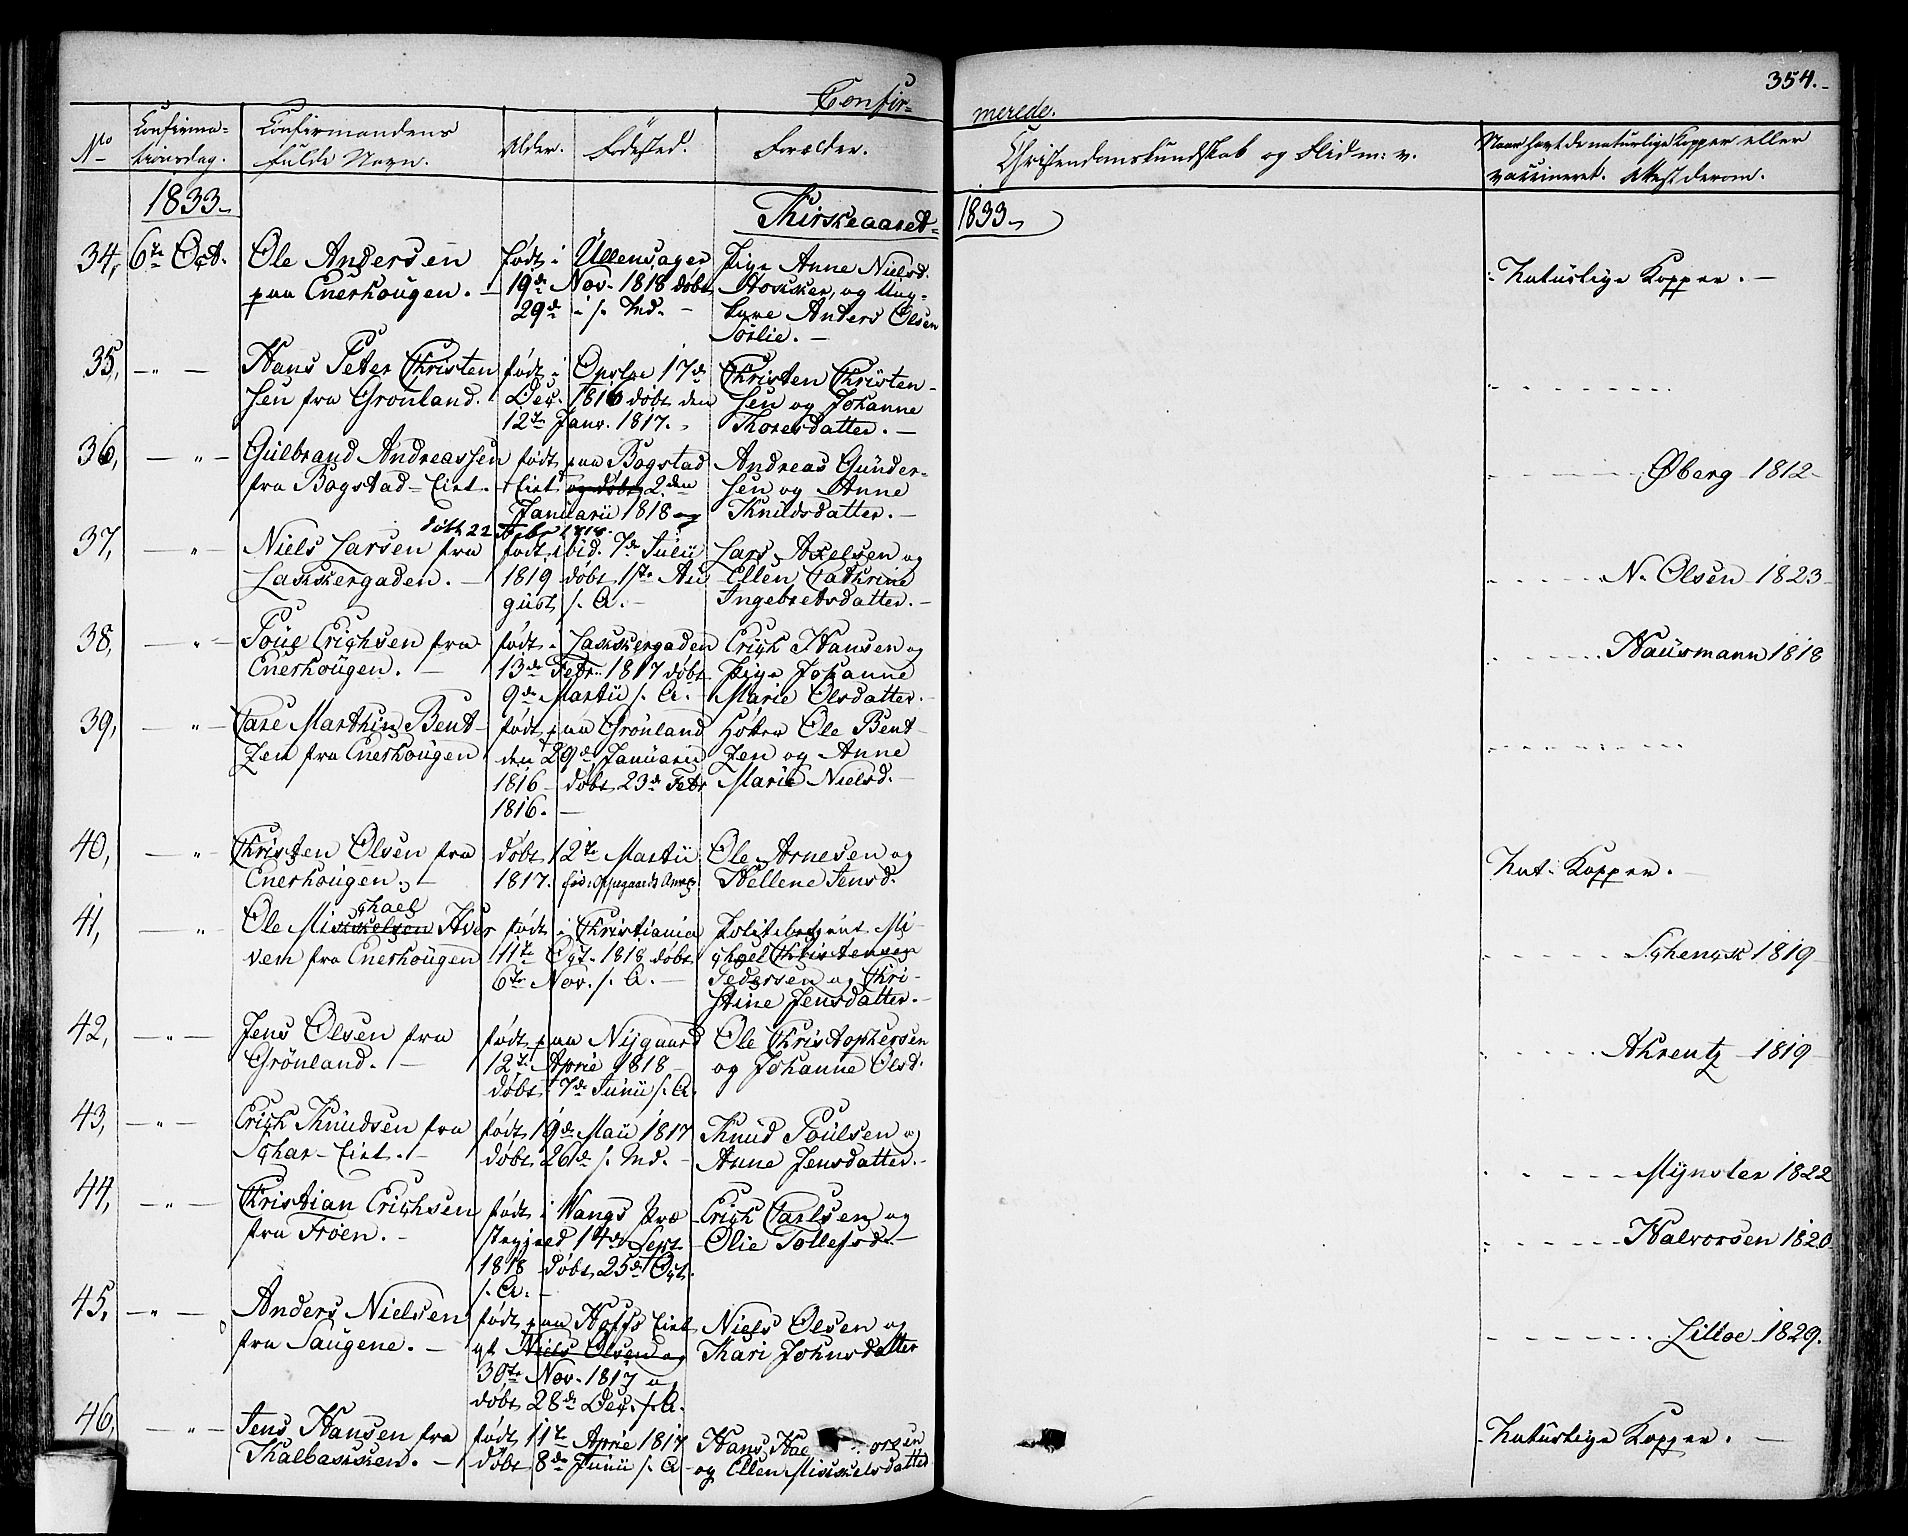 354.
Confir-
merede.
No
Confirma-
tionsdag.
Confirmandens
fulde Navn.
Alder.
Födested.
Forælder.
Christendomskundskab og Flid m: v.
Naar havt de naturlige Kopper eller
vaccineret. Attest derom.
1833-
Kirkeaaret-
1833-
34, 6te Oct.
Ole Andersen
paa Enerhougen. -
født i Ullensager
19de Nov. 1818 døbt
29de i s. Md. -
Pige Anne Nielsd.
og Ung-
kare Anders Olsen
Sørlie. -
Naturlige Kopper. -
35, -"-
Hans Peter Christen
sen fra Grønland.
født i Opsloe 17de
Dec. 1816 døbt den
12te Janv. 1817.
Christen Christen-
sen og Johanne
Thoresdatter. -
36, -"-
Gulbrand Andreassen
fra Bogstad-Eiet. -
født paa Bogstad
Eiet og døbt 2den
Januarii 1818 -
døbt 22 Febr 1818.
Andreas Gunder-
sen og Anne
Knudsdatter. -
Øberg 1812-
37, -"-
Niels Larsen fra
Lakkergaden. -
født ibid. 7de Julii
1819 døbt 1ste Au
gust s. A. -
Lars Axelsen og
Ellen Cathrine
Ingebretsdatter. -
N. Olsen 1823-
38, -"-
Poue Erichsen fra
Enerhougen. -
født i Lakkergaden
13de Febr. 1817 døbt
9de Martii s. A. -
Erich Hansen og
Pige Johanne
Marie Olsdatter. -
Hausmann 1818
39, -"-
Care Marthin Bent-
zen fra Enerhougen
født paa Grönland
den 29de Januarii
1816 - døbt 23de Febr
1816. -
Høker Ole Bent-
zen og Anne
Marie Nielsd. -
40, -"-
Christen Olsen fra
Enerhougen. -
døbt 12te Martii
1817. fød i Oppegaards Annex
Ole Arnesen og
Hellene Jensd.
Nat: Kopper. -
41, -"-
chael
Ole Mikkelsen Hver
ven fra Enerhougen
født i Christiania
11te Oct. 1818 døbt
6te Nov. s. A. -
Politibetjent Mi-
chael Christensen
Pedersen og Chri-
stine Jensdatter. -
Schenck 1819-
42, -"-
Jens Olsen fra
Grönland. -
født paa Nijgaard
12te Aprie 1818 -
døbt 7de Junii s. A.
Ole Christophersen
og Johanne Olsd.
Ahrentz 1819-
43, -"-
Erich Knudsen fra
Schar-Eiet. -
født 19de Maii 1817
døbt 26de s. Md. -
Knud Poulsen og
Anne Jensdatter. -
Mynster 1822
44, -"-
Christian Erichsen
fra Frøen. -
født i Vangs Præ
stegjeld 14de Sept.
1818 døbt 25de Oct.
s. A. -
Erich Carlsen og
Olie Tollefsd. -
Halvorsen 1820
45, -"-
Anders Nielsen
fra Saugene. -
født paa Hofs Eiet
af Niels Olsen og
30te Nov. 1817 og
døbt 28de Dec. s. A.
Niels Olsen og
Kari Johnsdatter
Lilloe 1829.
46, -"-
Jens Hansen fra
Kalbakken. -
født 11te Aprie 1817
døbt 8de Junii s. A -
Hans Hae orsen
og Ellen Mikkelsdatter
Naturlige Kopper. -